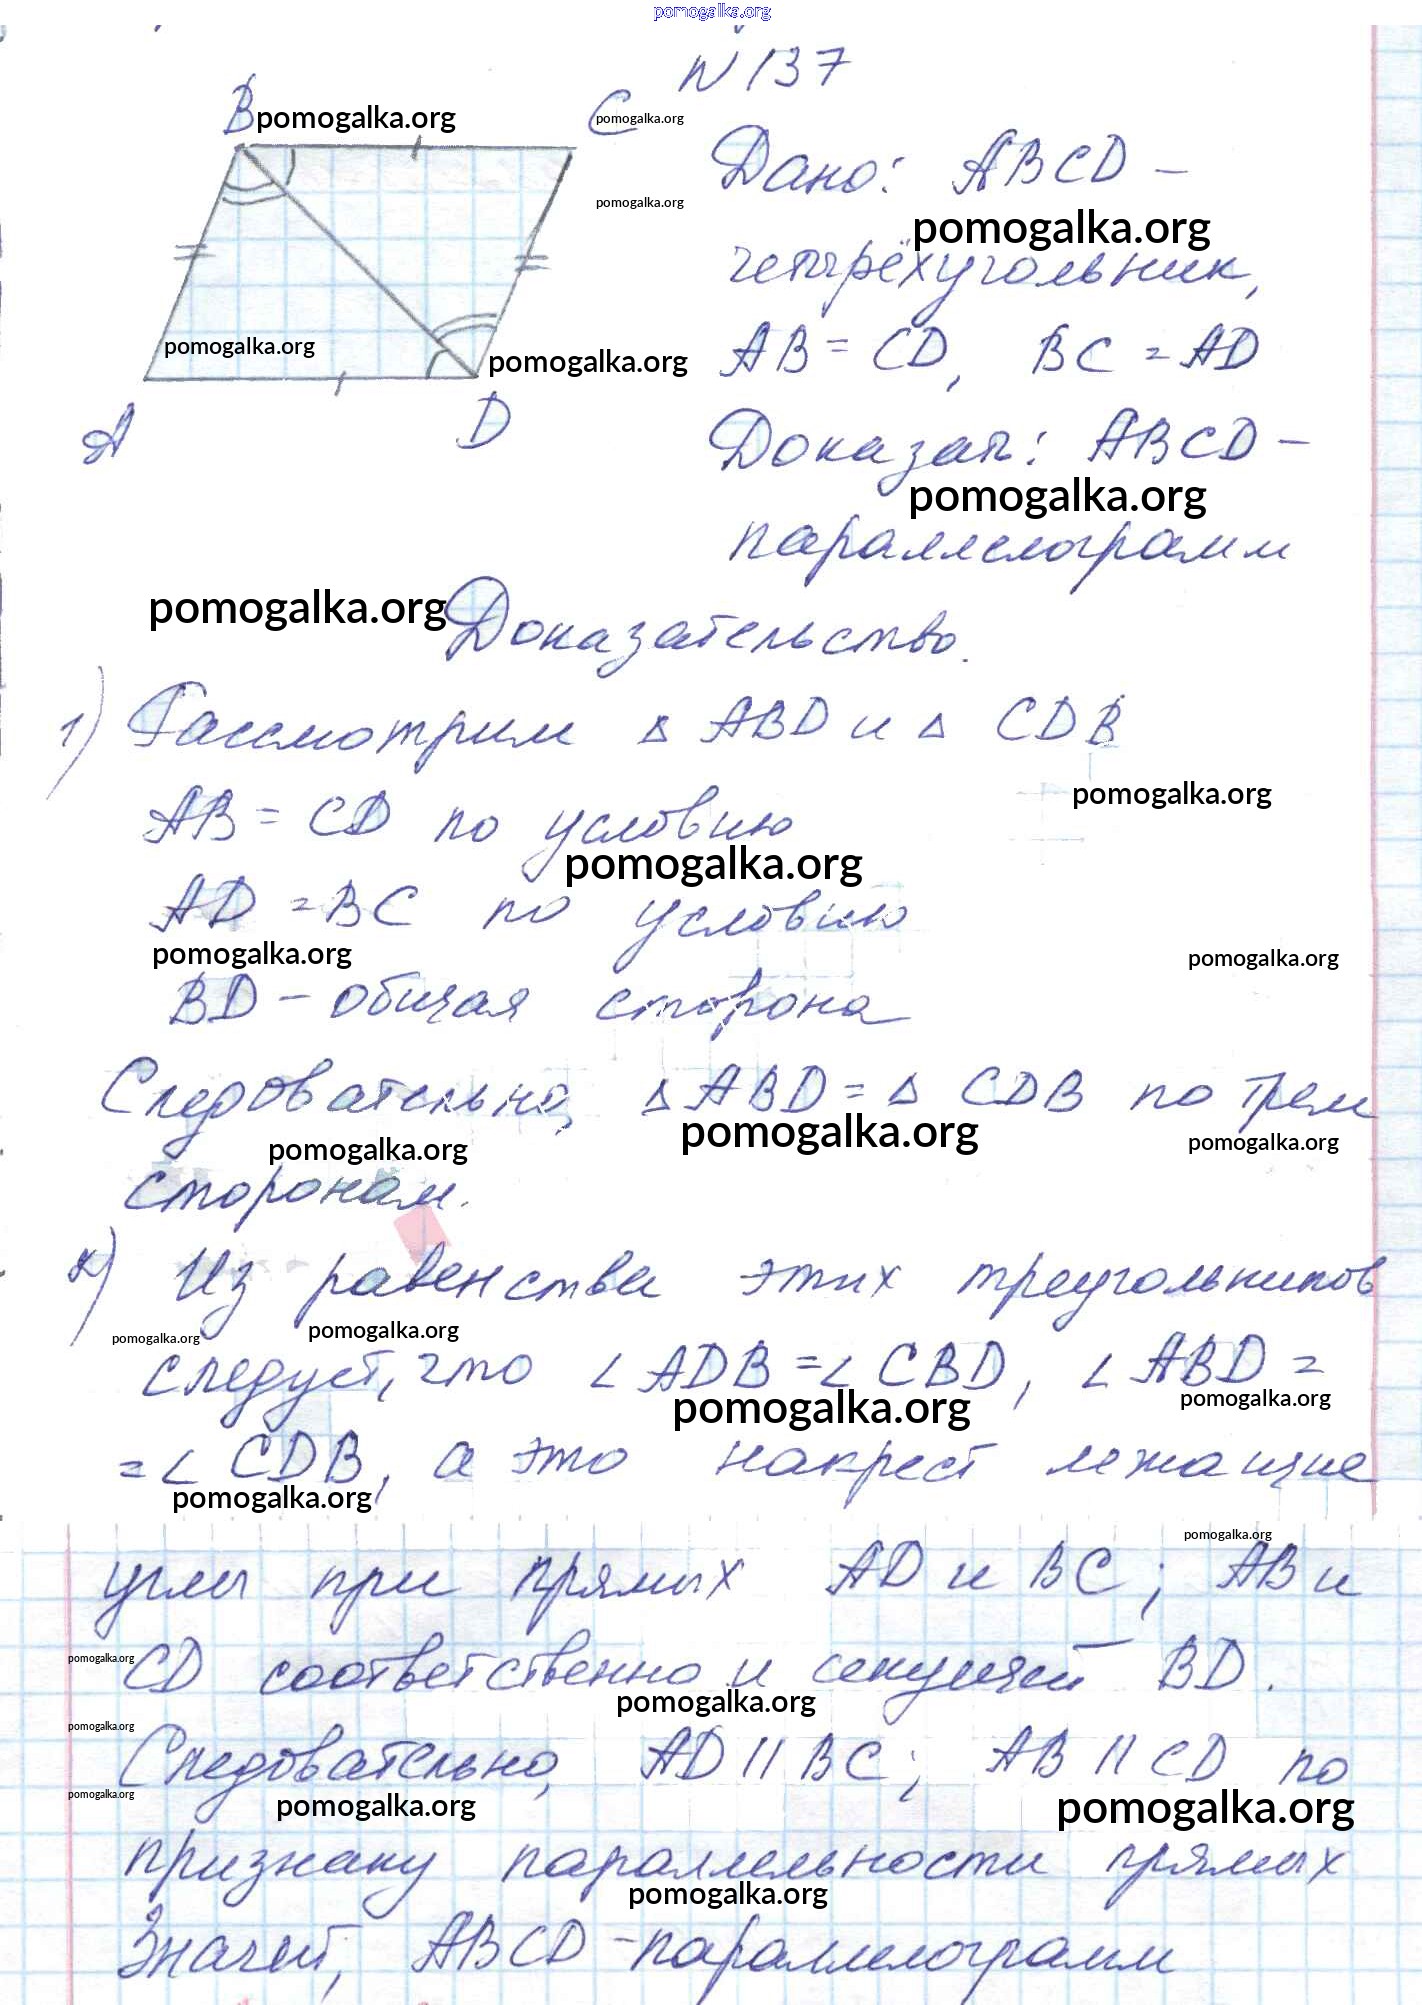 pomogalka.org
N 137
B pomogalka.org C pomogalka.org
Дано: ABCD –
pomogalka.org
pomogalka.org
четырёхугольник,
AB = CD, BC = AD
pomogalka.org
pomogalka.org
A D
Доказат: ABCD –
pomogalka.org
параллелограмм
pomogalka.org
Доказательство.
1) Рассмотрим Δ ABD и Δ CDB
pomogalka.org
AB = CD по условию
pomogalka.org
AD = BC по условию
pomogalka.org
pomogalka.org
BD – общая сторона
Следовательно, Δ ABD = Δ CDB по трем
pomogalka.org
pomogalka.org
pomogalka.org
сторонам.
2) Из равенства этих треугольников
pomogalka.org
pomogalka.org
следует, что ∠ ADB = ∠ CBD, ∠ ABD =
pomogalka.org
pomogalka.org
= ∠ CDB, а это накрест лежащие
pomogalka.org
pomogalka.org
углы при прямых AD и BC; AB и
pomogalka.org
CD соответственно и секущей BD.
pomogalka.org
pomogalka.org
Следовательно, AD || BC; AB || CD по
pomogalka.org
pomogalka.org
pomogalka.org
признаку параллельности прямых
pomogalka.org
Значит, ABCD – параллелограмм